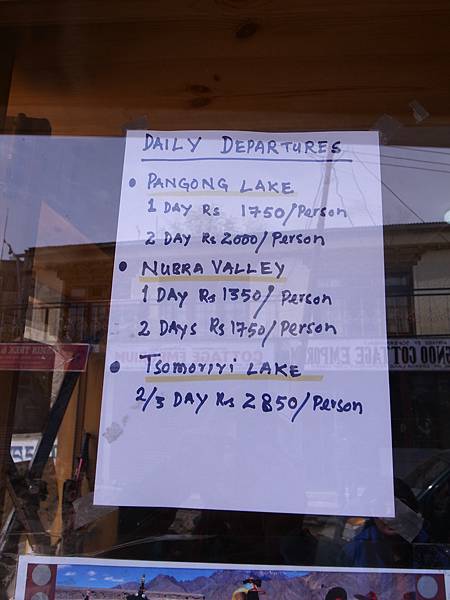 DAILY DEPARTURES
• PANGONG LAKE
1 DAY Rs 1750/Person
2 DAY Rs 2000/Person
• NUBRA VALLEY
1 DAY Rs 1350/Person
2 DAYS Rs 1750/Person
• TSOMORIRI LAKE
2/3 DAY Rs 2850/Person